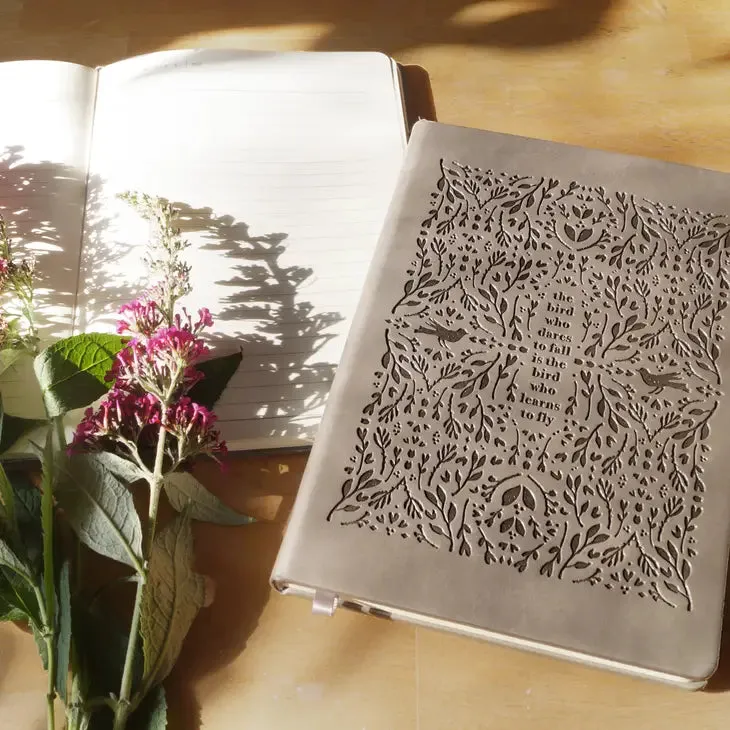 the
bird
who
dares
to fall
is the
bird
who
learns
to fly